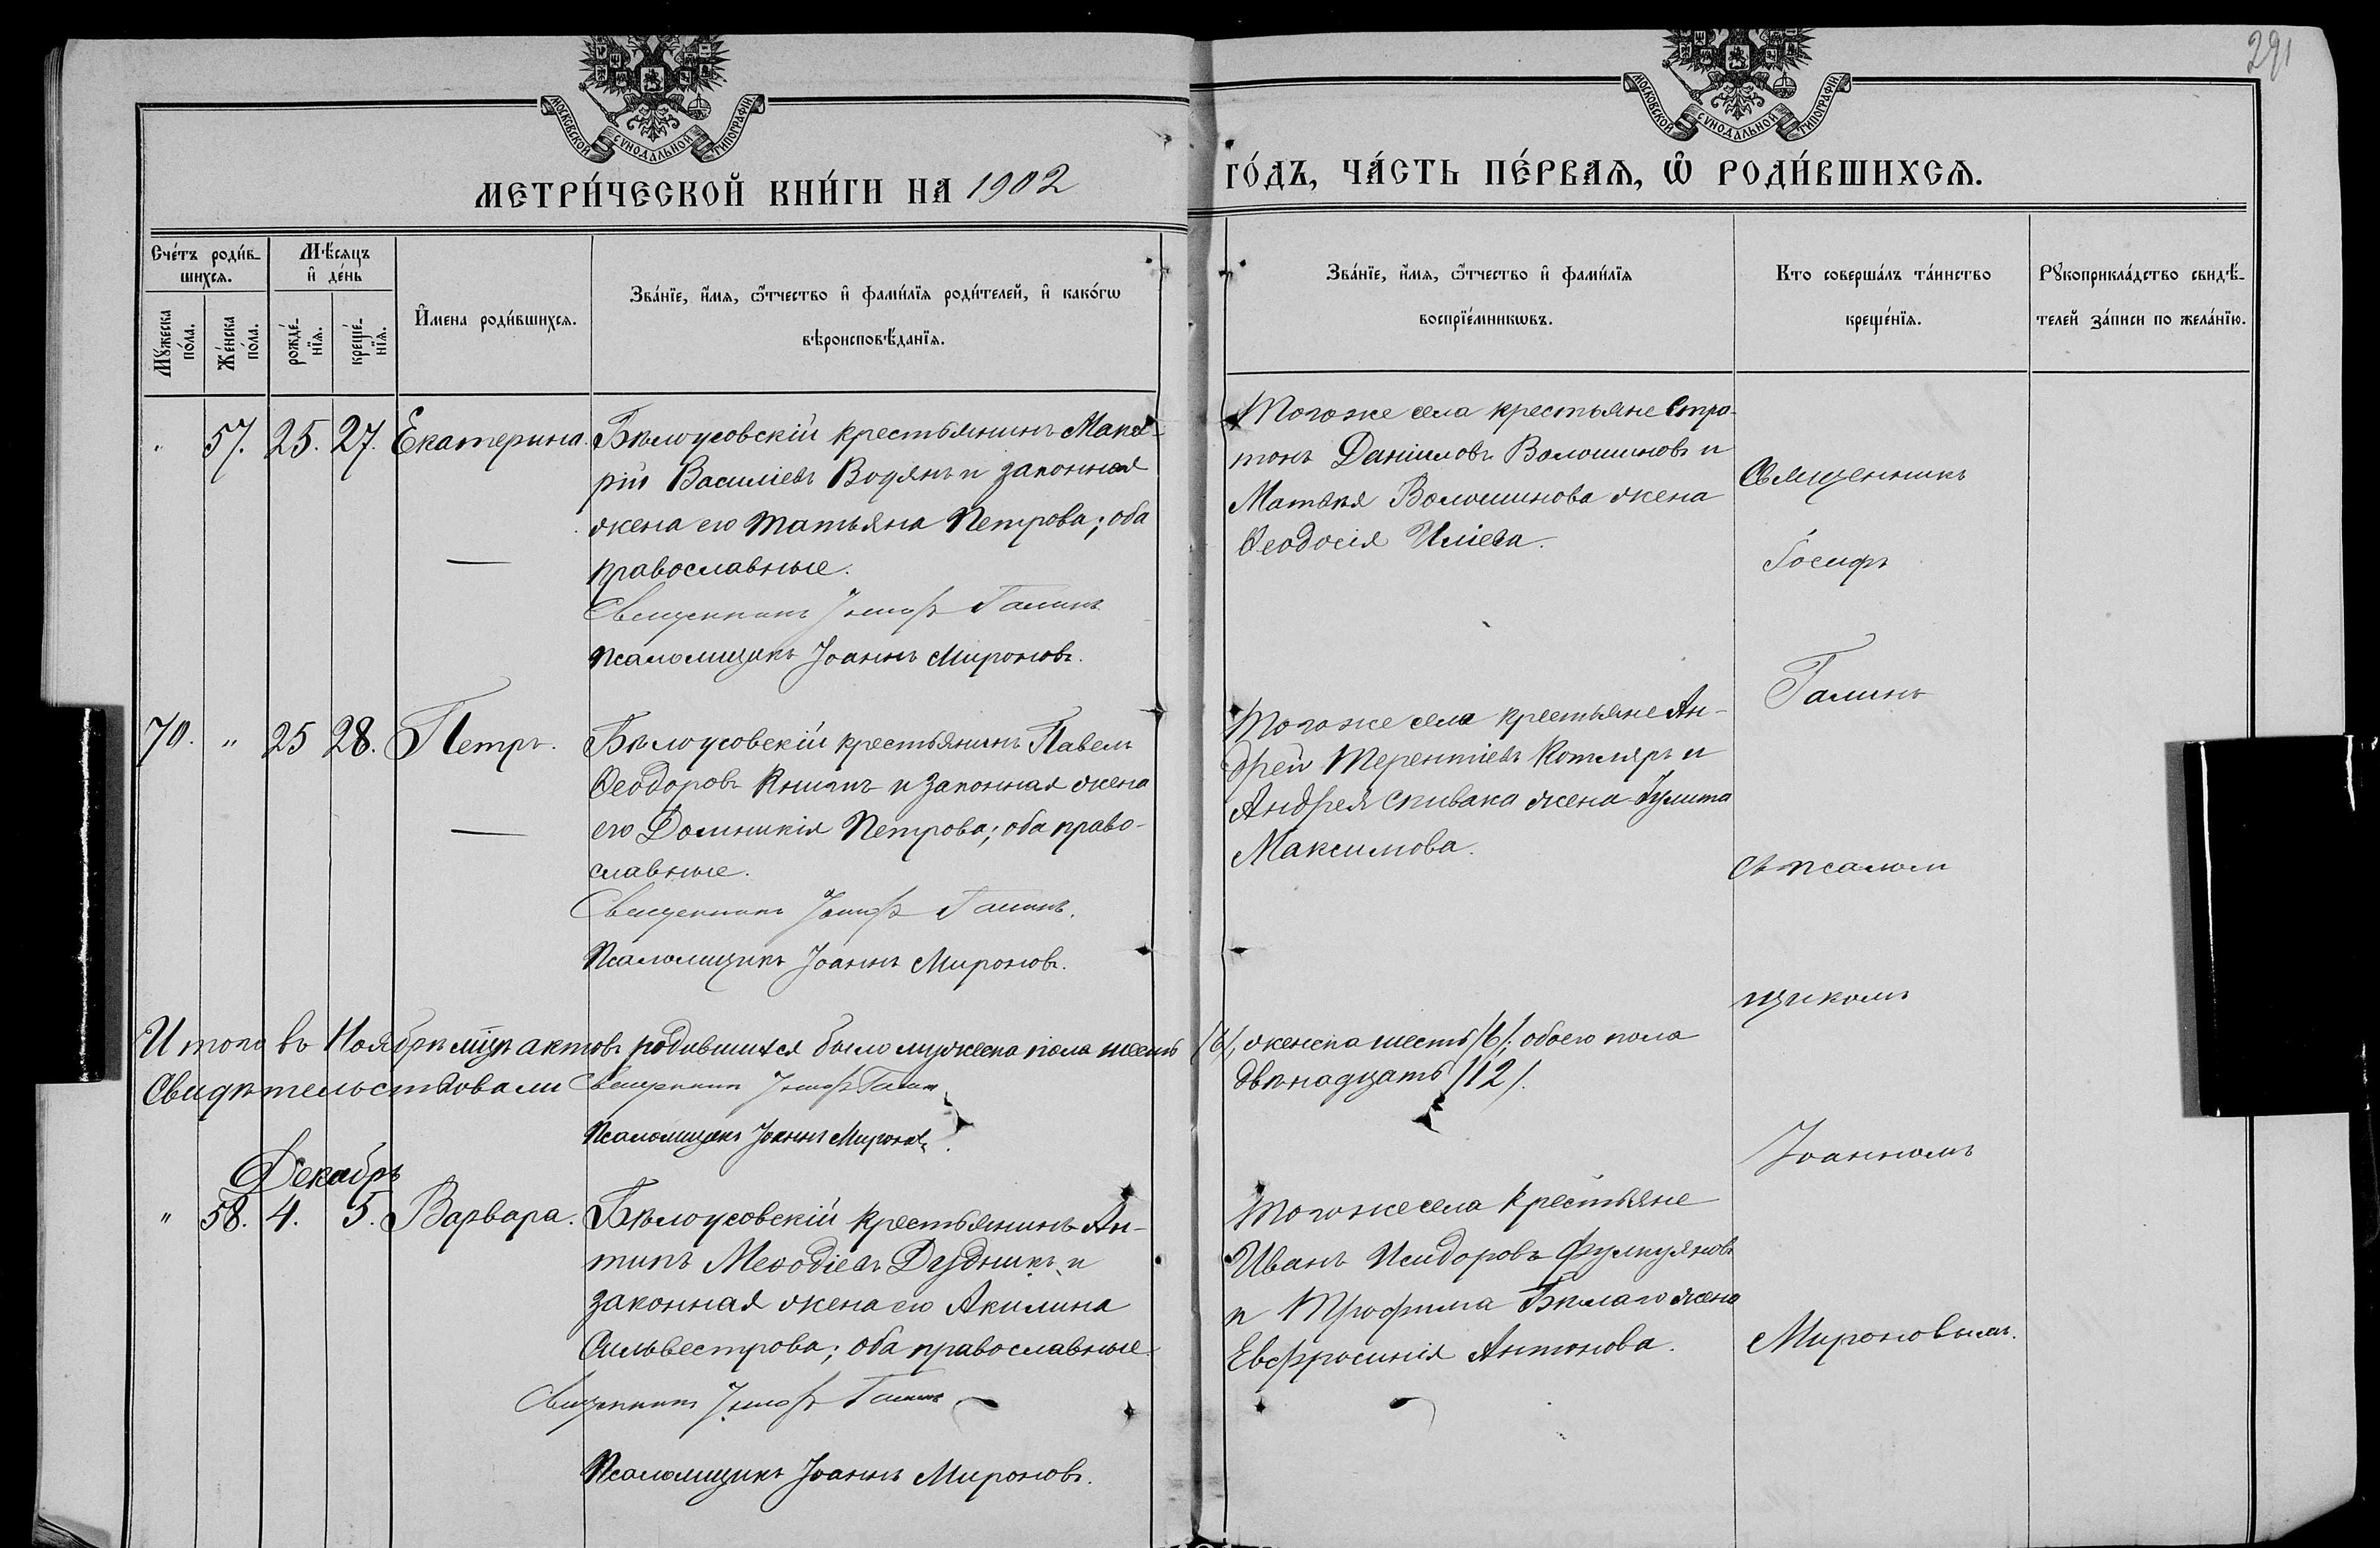 291
МОСКОВСКОЙ СѴНОДАЛЬНОЙ ТИПОГРАФІИ
МОСКОВСКОЙ СѴНОДАЛЬНОЙ ТИПОГРАФІИ
МЕТРИ́ЧЕСКОЙ КНИ́ГИ НА 1902
ГО́ДЪ, ЧА́СТЬ ПЕ́РВАѦ, Ѡ РОДИ́ВШИХСѦ.
Сче́тъ роди́в-
шихсѧ.
Мꙋ́жеска по́ла.
Же́нска по́ла.
Мѣ́сѧцъ
и҆ де́нь
рожде́-
нїѧ.
креще́-
нїѧ.
И҆́мена роди́вшихсѧ.
Зва́нїе, и҆́мѧ, ѻ҆́тчество и҆ фами́лїѧ роди́телей, и҆ како́гѡ
вѣроисповѣ́данїѧ.
Зва́нїе, и҆́мѧ, ѻ҆́тчество и҆ фами́лїѧ
воспрїе́мникѡвъ.
Кто соверша́лъ та́инство
креще́нїѧ.
Рꙋкоприкла́дство свидѣ́-
телей за́писи по жела́нїю.
" 57. 25. 27. Екатерина. Бѣлоусовскій крестьянинъ Мака-
рій Василіевъ Водянъ и законная
жена его Татьяна Петрова; оба
православные.
Священникъ Іосифъ Галинъ
Псаломщикъ Іоаннъ Мироновъ.
Тогоже села крестьяне Стра-
тонъ Даніиловъ Волошиновъ и
Матѳея Волошинова жена
Ѳеодосія Иліева.
70. " 25 28. Петръ. Бѣлоусовскій крестьянинъ Павелъ
Ѳеодоровъ и законная жена
его Домникія Петрова; оба право-
славные.
Священникъ Іосифъ Галинъ.
Псаломщикъ Іоаннъ Мироновъ.
Тогоже села крестьяне Ан-
дрей Терентіевъ Котляръ и
Андрея Спивака жена Іулита
Максимова.
Итого въ Ноябрѣ мцѣ актовъ родившихся было мужеска пола шесть /6/, женска шесть /6/; обоего пола
двѣнадцать /12/.
Свидѣтельствовали Священникъ Іосифъ Галинъ
Псаломщикъ Іоаннъ Мироновъ.
Декабрь
" 58. 4. 5. Варвара. Бѣлоусовскій крестьянинъ Ан-
типъ Меѳодіевъ Дудникъ и
законная жена его Акилина
Сильвестрова; оба православные
Священникъ Іосифъ Галинъ
Псаломщикъ Іоаннъ Мироновъ.
Тогоже села крестьяне
Иванъ Исидоровъ
и Трофима Бѣлаго жена
Евфросинія Антонова.
Священникъ
Іосифъ
Галинъ
съ псалом
щикомъ
Іоанномъ
Мироновымъ.